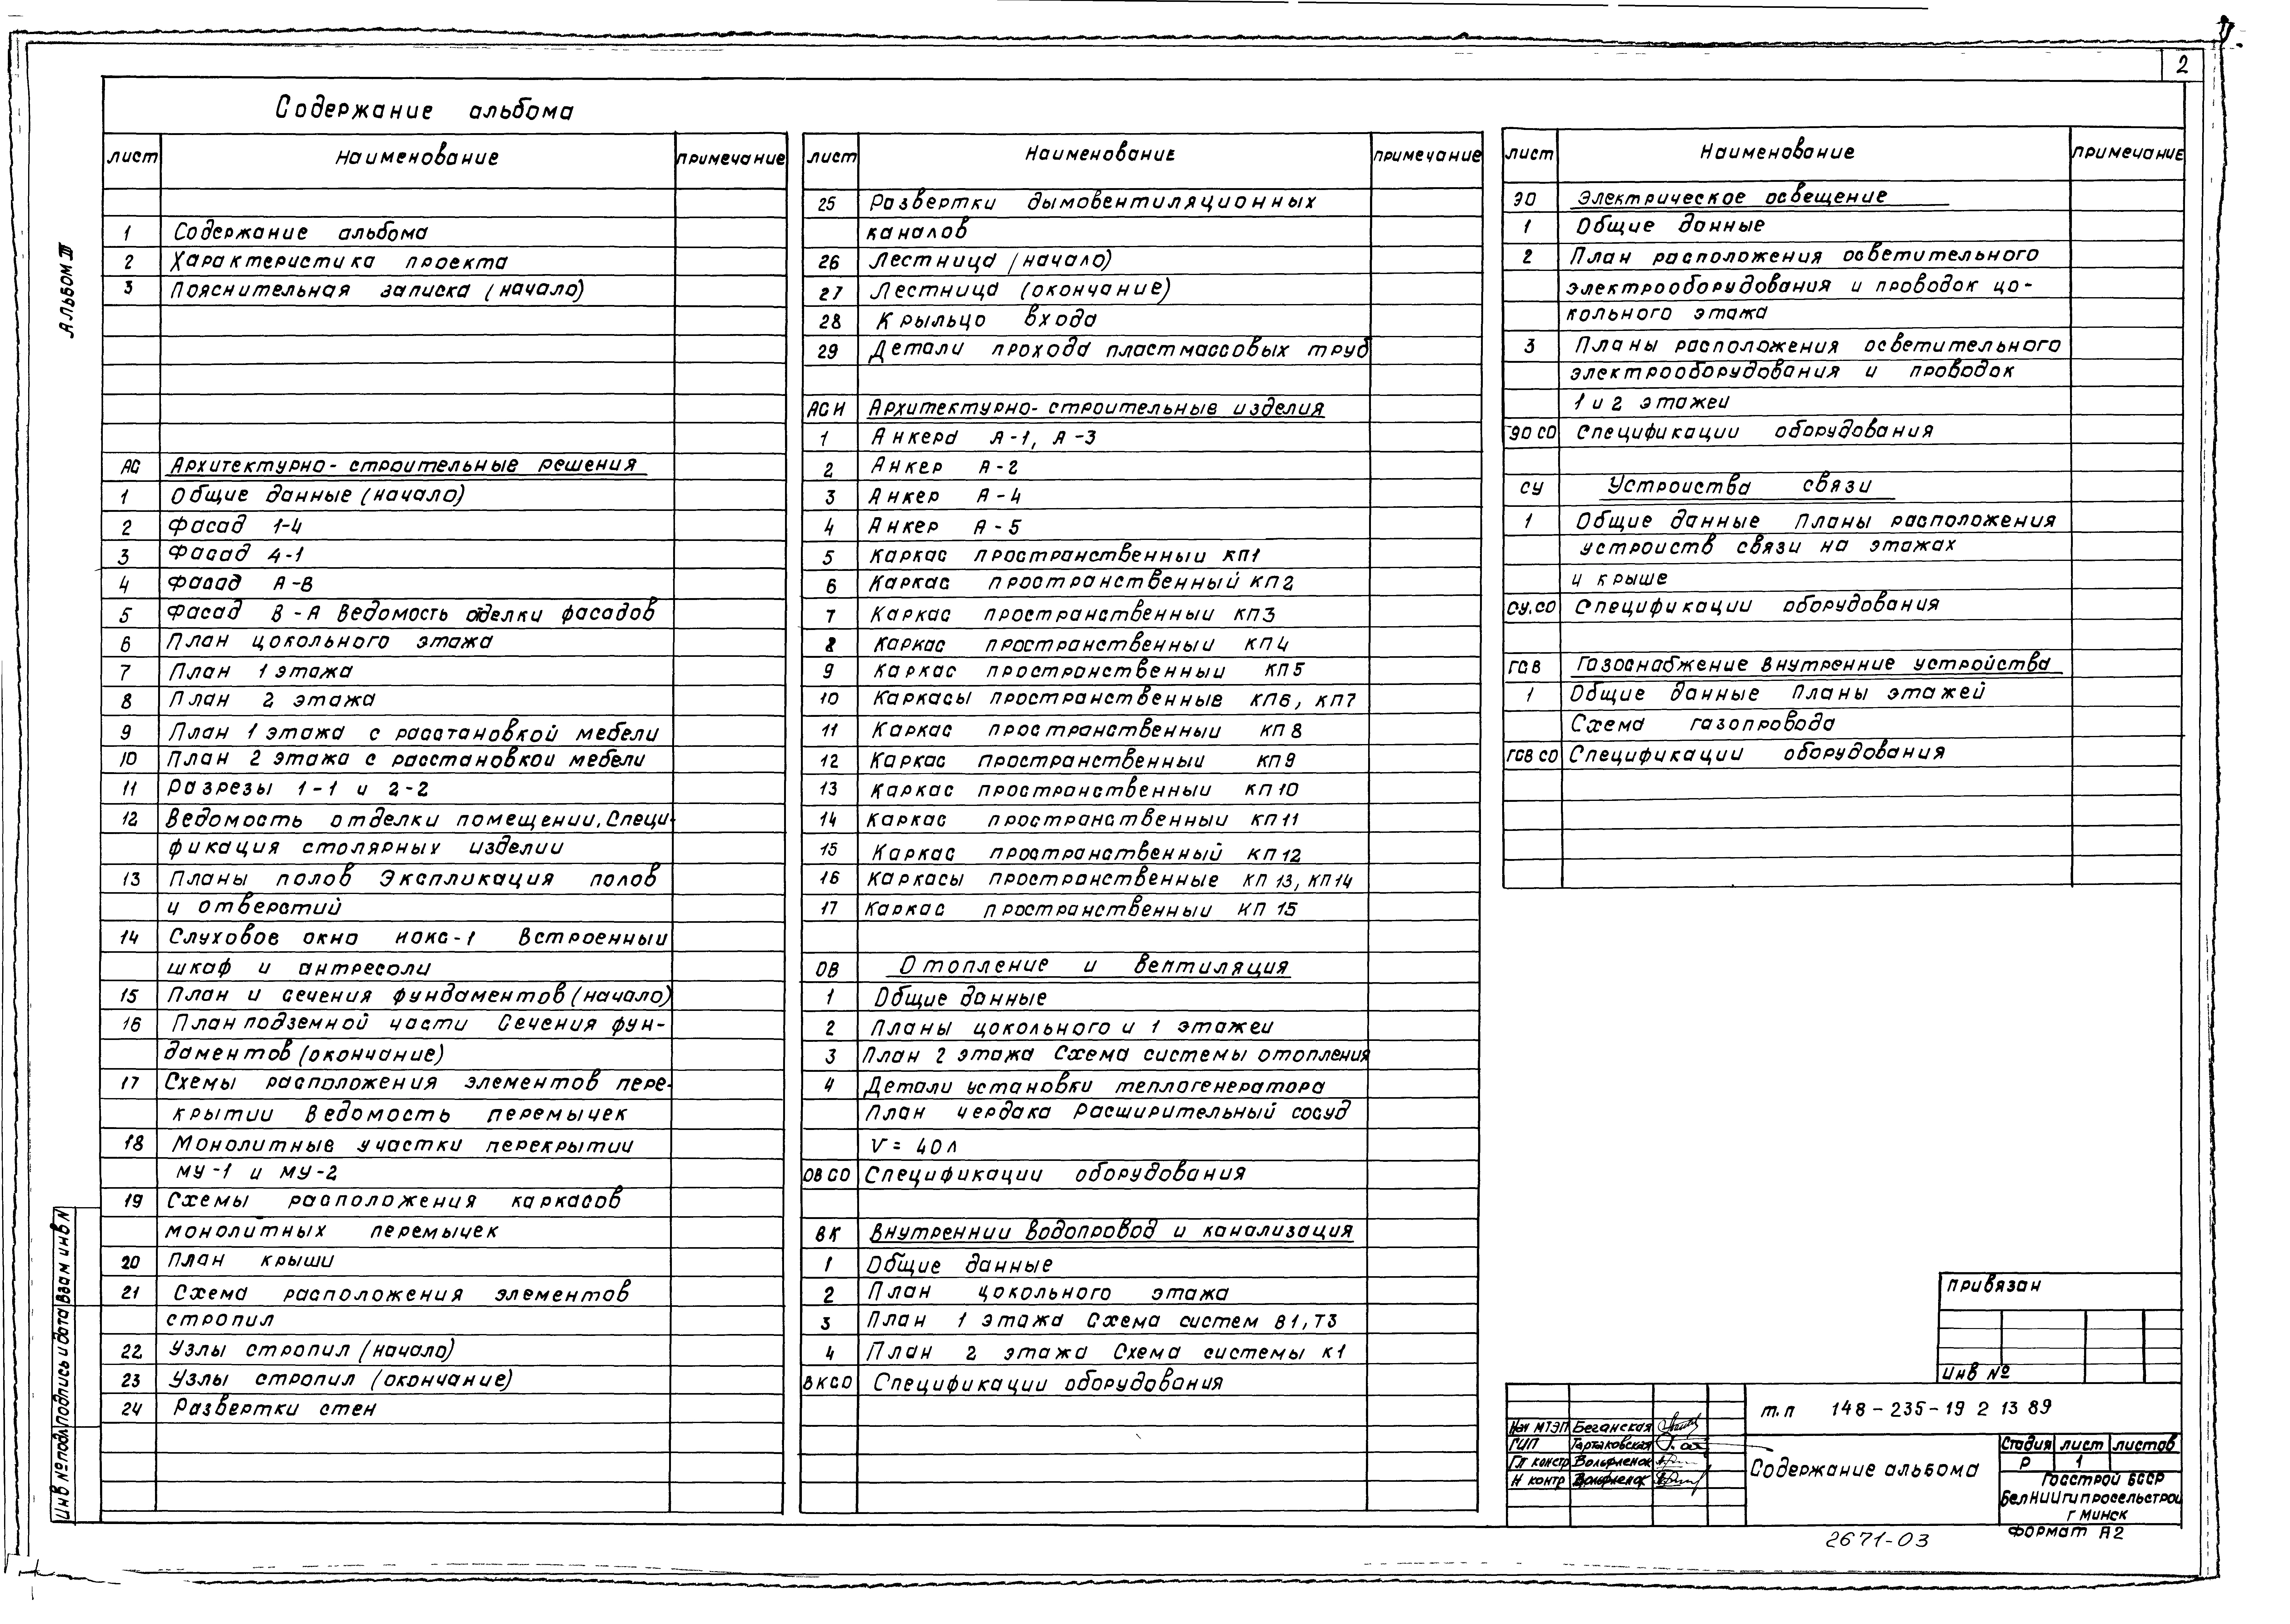 2
Альбом III
Содержание альбома
лист Наименование примечание
1 Содержание альбома
2 Характеристика проекта
3 Пояснительная записка (начало)
АС Архитектурно-строительные решения
1 Общие данные (начало)
2 Фасад 1-4
3 Фасад 4-1
4 Фасад А-В
5 Фасад В-А Ведомость отделки фасадов
6 План цокольного этажа
7 План 1 этажа
8 План 2 этажа
9 План 1 этажа с расстановкой мебели
10 План 2 этажа с расстановкой мебели
11 Разрезы 1-1 и 2-2
12 Ведомость отделки помещении. Специ-
фикация столярных изделии
13 Планы полов Экспликация полов
и отверстий
14 Слуховое окно Встроенныи
шкаф и антресоли
15 План и сечения фундаментов (начало)
16 План подземной части Сечения фун-
даментов (окончание)
17 Схемы расположения элементов пере-
крытии Ведомость перемычек
18 Монолитные участки перекрытии
МУ-1 и МУ-2
19 Схемы расположения каркасов
монолитных перемычек
20 План крыши
21 Схема расположения элементов
стропил
22 Узлы стропил (начало)
23 Узлы стропил (окончание)
24 Развертки стен
лист Наименование примечание
25 Развертки дымовентиляционных
каналов
26 Лестница (начало)
27 Лестница (окончание)
28 Крыльцо входа
29 Детали прохода пластмассовых труб
АСИ Архитектурно-строительные изделия
1 Анкера А-1, А-3
2 Анкер А-2
3 Анкер А-4
4 Анкер А-5
5 Каркас пространственныи КП1
6 Каркас пространственный КП2
7 Каркас пространственныи КП3
8 Каркас пространственныи КП4
9 Каркас пространственныи КП5
10 Каркасы пространственные КП6, КП7
11 Каркас пространственныи КП8
12 Каркас пространственныи КП9
13 Каркас пространственныи КП10
14 Каркас пространственныи КП11
15 Каркас пространственный КП12
16 Каркасы пространственные КП13, КП14
17 Каркас пространственныи КП15
ОВ Отопление и вентиляция
1 Общие данные
2 Планы цокольного и 1 этажеи
3 План 2 этажа Схема системы отопления
4 Детали установки теплогенератора
План чердака Расширительный сосуд
V = 40л
ОВ СО Спецификации оборудования
ВК Внутреннии водопровод и канализация
1 Общие данные
2 План цокольного этажа
3 План 1 этажа Схема систем В1, Т3
4 План 2 этажа Схема системы К1
ВКСО Спецификации оборудования
лист Наименование примечание
ЭО Электрическое освещение
1 Общие данные
2 План расположения осветительного
электрооборудования и проводок цо-
кольного этажа
3 Планы расположения осветительного
электрооборудования и проводок
1 и 2 этажеи
ЭО СО Спецификации оборудования
СУ Устроиства связи
1 Общие данные Планы расположения
устроиств связи на этажах
и крыше
СУ.СО Спецификации оборудования
ГСВ Газоснабжение Внутренние устройства
1 Общие данные Планы этажей
Схема газопровода
ГСВ СО Спецификации оборудования
привязан
Инв №
т.п 148-235-19 2 13 89
Нач МТЭП Беганская
ГИП Тартаковская
Гл констр Вольфненок
Н контр Вольфненок
Содержание альбома
Стадия лист листов
Р 1
Госстрой БССР
БелНИИгипросельстрой
г Минск
Формат А2
2671-03
Инв № подл подпись и дата Взам инв №